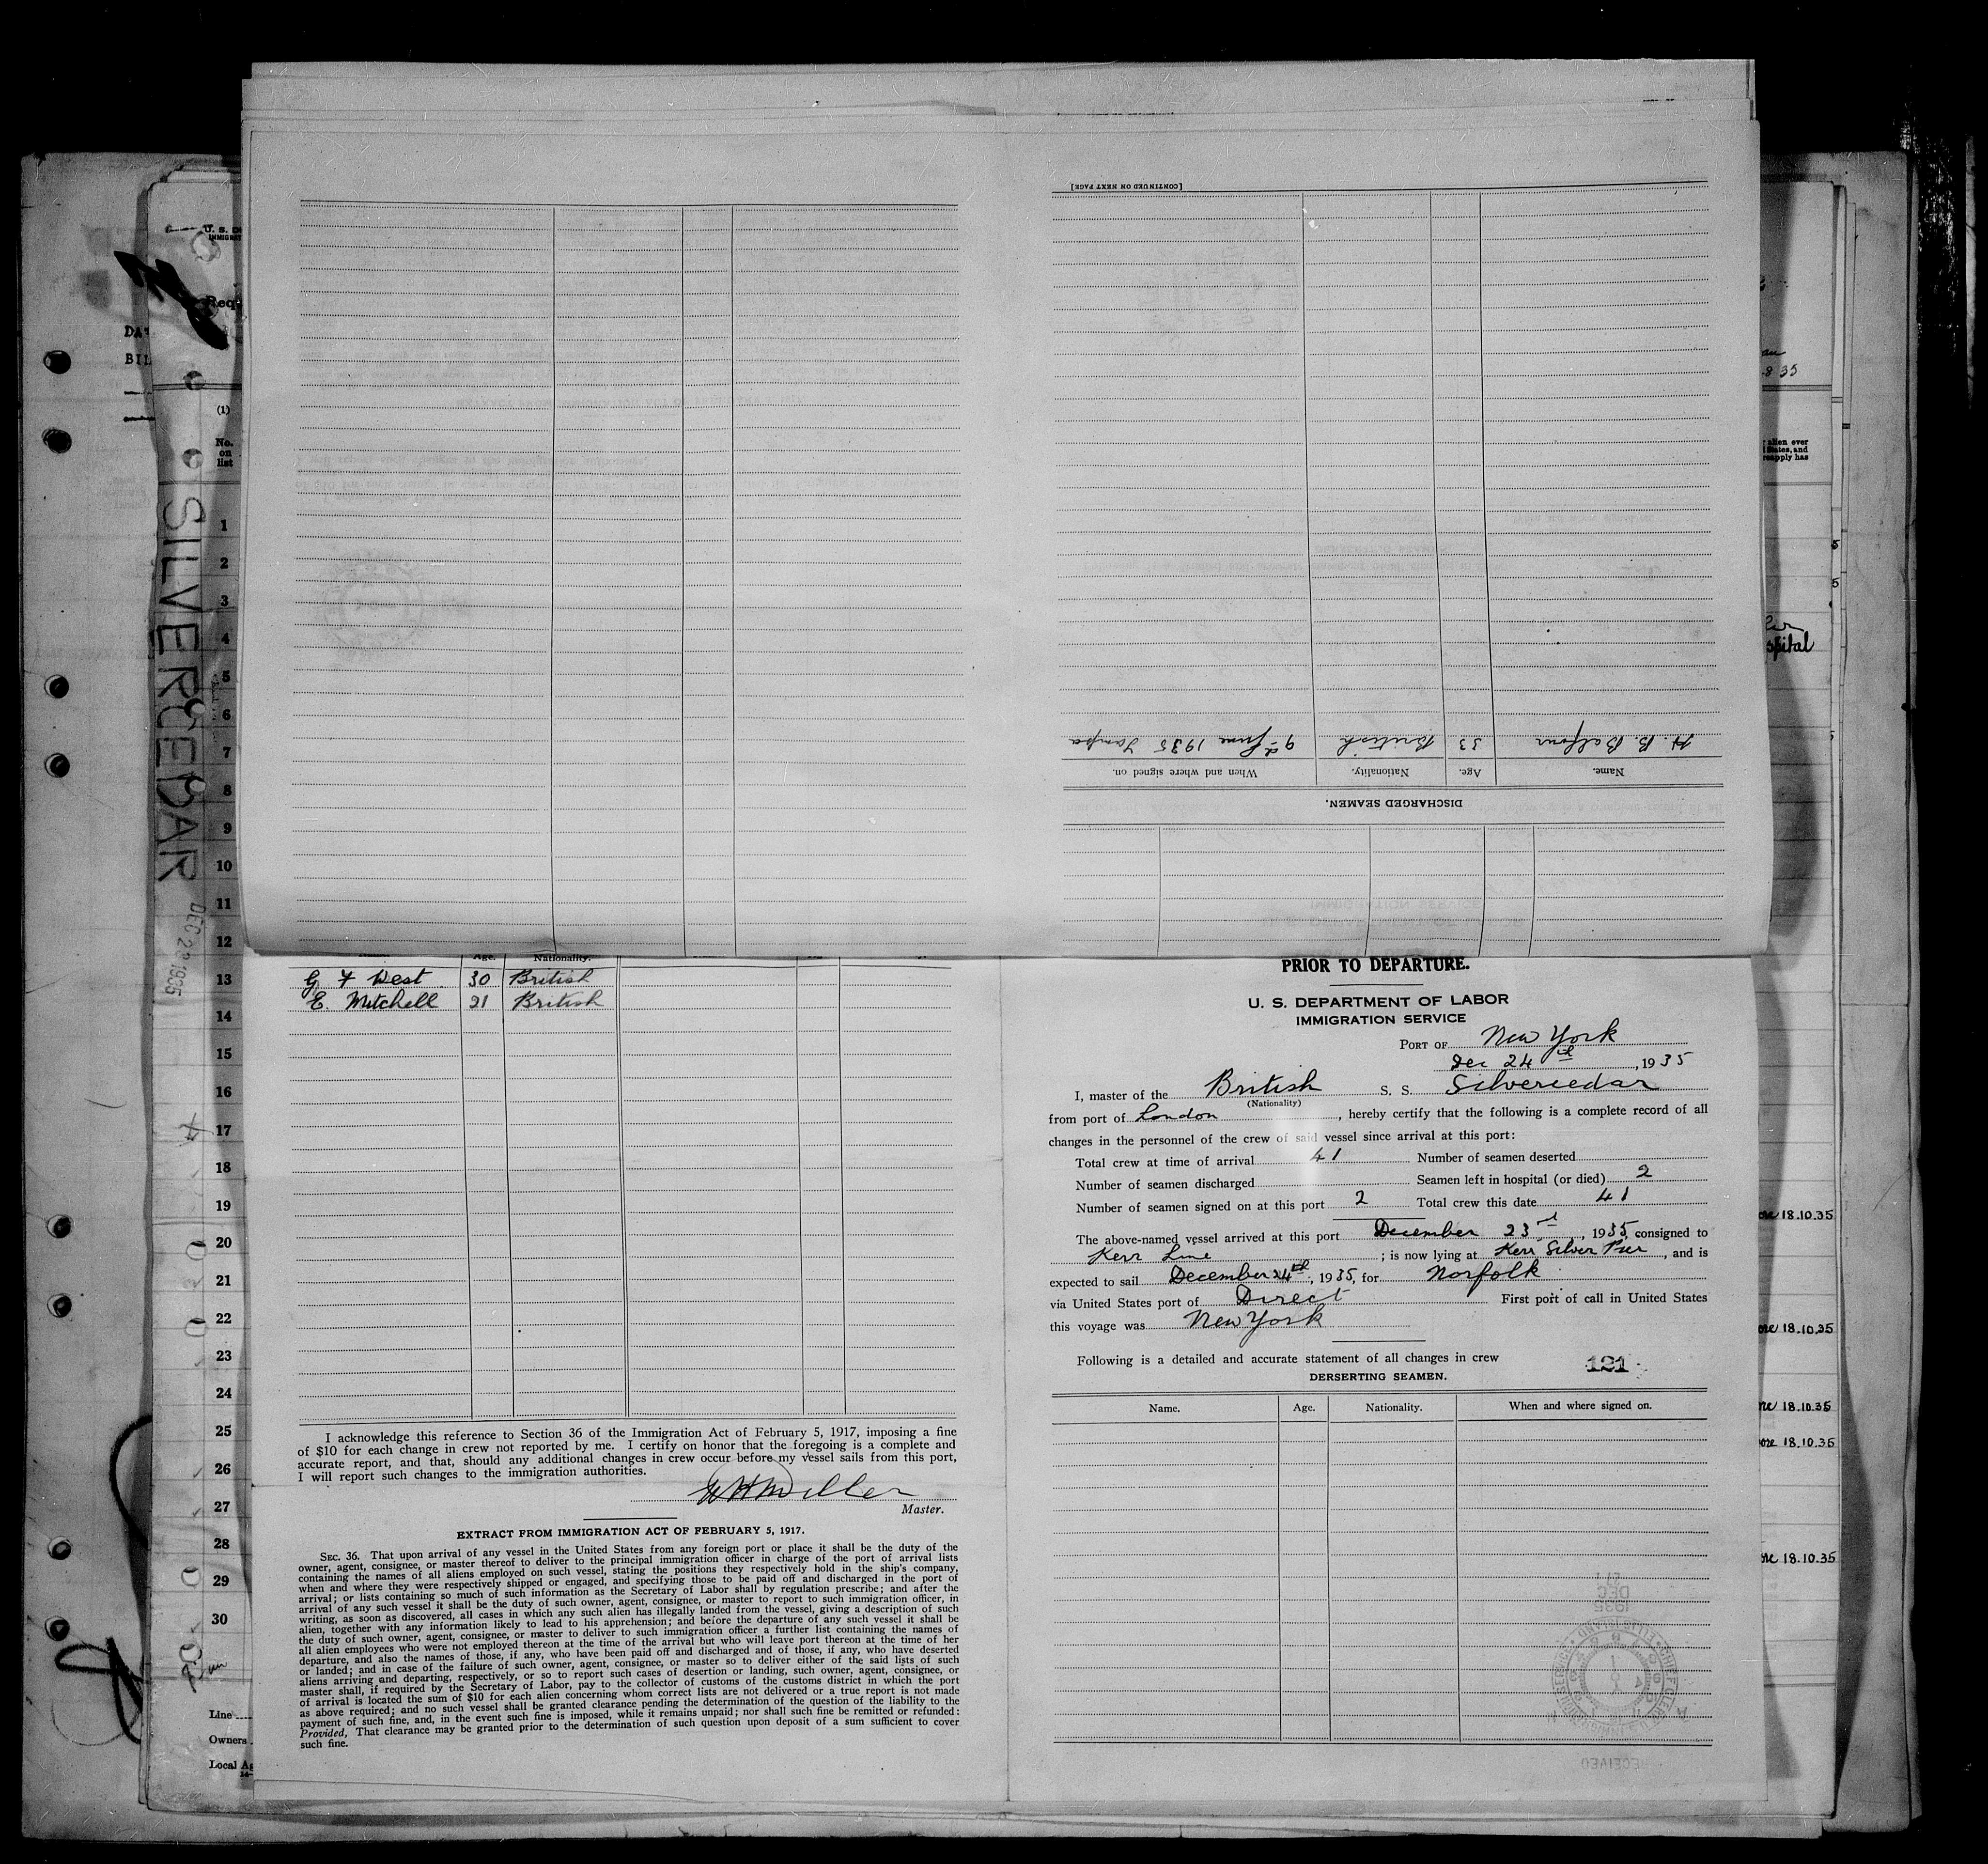 [CONTINUED ON NEXT PAGE]
H. B. Balfour 33 British 9th June 1935 Tampa
Name. Age. Nationality. When and where signed on.
DISCHARGED SEAMEN.
U. S. DE
IMMIGRAT
Req
DAT
BIL
(1)
No.
on
list
SILVERCEDAR DEC 23 1935
1
2
3
4
5
6
7
8
9
10
11
12
13
14
15
16
17
18
19
20
21
22
23
24
25
26
27
28
29
30
Line
Owners
Local Ag
8 35
alien ever
States, and
reapply has
spital
18.10.35
18.10.35
18.10.35
18.10.35
18.10.35
Age. Nationality.
G F West 30 British
E. Mitchell 21 British
I acknowledge this reference to Section 36 of the Immigration Act of February 5, 1917, imposing a fine
of $10 for each change in crew not reported by me. I certify on honor that the foregoing is a complete and
accurate report, and that, should any additional changes in crew occur before my vessel sails from this port,
I will report such changes to the immigration authorities.
Miller
Master.
EXTRACT FROM IMMIGRATION ACT OF FEBRUARY 5, 1917.
SEC. 36. That upon arrival of any vessel in the United States from any foreign port or place it shall be the duty of the
owner, agent, consignee, or master thereof to deliver to the principal immigration officer in charge of the port of arrival lists
containing the names of all aliens employed on such vessel, stating the positions they respectively hold in the ship's company,
when and where they were respectively shipped or engaged, and specifying those to be paid off and discharged in the port of
arrival; or lists containing so much of such information as the Secretary of Labor shall by regulation prescribe; and after the
arrival of any such vessel it shall be the duty of such owner, agent, consignee, or master to report to such immigration officer, in
writing, as soon as discovered, all cases in which any such alien has illegally landed from the vessel, giving a description of such
alien, together with any information likely to lead to his apprehension; and before the departure of any such vessel it shall be
the duty of such owner, agent, consignee, or master to deliver to such immigration officer a further list containing the names of
all alien employees who were not employed thereon at the time of the arrival but who will leave port thereon at the time of her
departure, and also the names of those, if any, who have been paid off and discharged and of those, if any, who have deserted
or landed; and in case of the failure of such owner, agent, consignee, or master so to deliver either of the said lists of such
aliens arriving and departing, respectively, or so to report such cases of desertion or landing, such owner, agent, consignee, or
master shall, if required by the Secretary of Labor, pay to the collector of customs of the customs district in which the port
of arrival is located the sum of $10 for each alien concerning whom correct lists are not delivered or a true report is not made
as above required; and no such vessel shall be granted clearance pending the determination of the question of the liability to the
payment of such fine, and, in the event such fine is imposed, while it remains unpaid; nor shall such fine be remitted or refunded:
Provided, That clearance may be granted prior to the determination of such question upon deposit of a sum sufficient to cover
such fine.
PRIOR TO DEPARTURE.
U. S. DEPARTMENT OF LABOR
IMMIGRATION SERVICE
PORT OF New York
Dec 24th, 1935
I, master of the British S. S. Silvercedar
(Nationality)
from port of London, hereby certify that the following is a complete record of all
changes in the personnel of the crew of said vessel since arrival at this port:
Total crew at time of arrival 41 Number of seamen deserted
Number of seamen discharged Seamen left in hospital (or died) 2
Number of seamen signed on at this port 2 Total crew this date 41
The above-named vessel arrived at this port December 23rd, 1935, consigned to
Kerr Line; is now lying at Kerr Silver Pier, and is
expected to sail December 24th, 1935, for Norfolk
via United States port of Direct First port of call in United States
this voyage was New York
Following is a detailed and accurate statement of all changes in crew 121
DERSERTING SEAMEN.
Name. Age. Nationality. When and where signed on.
DEC
1935
RECEIVED